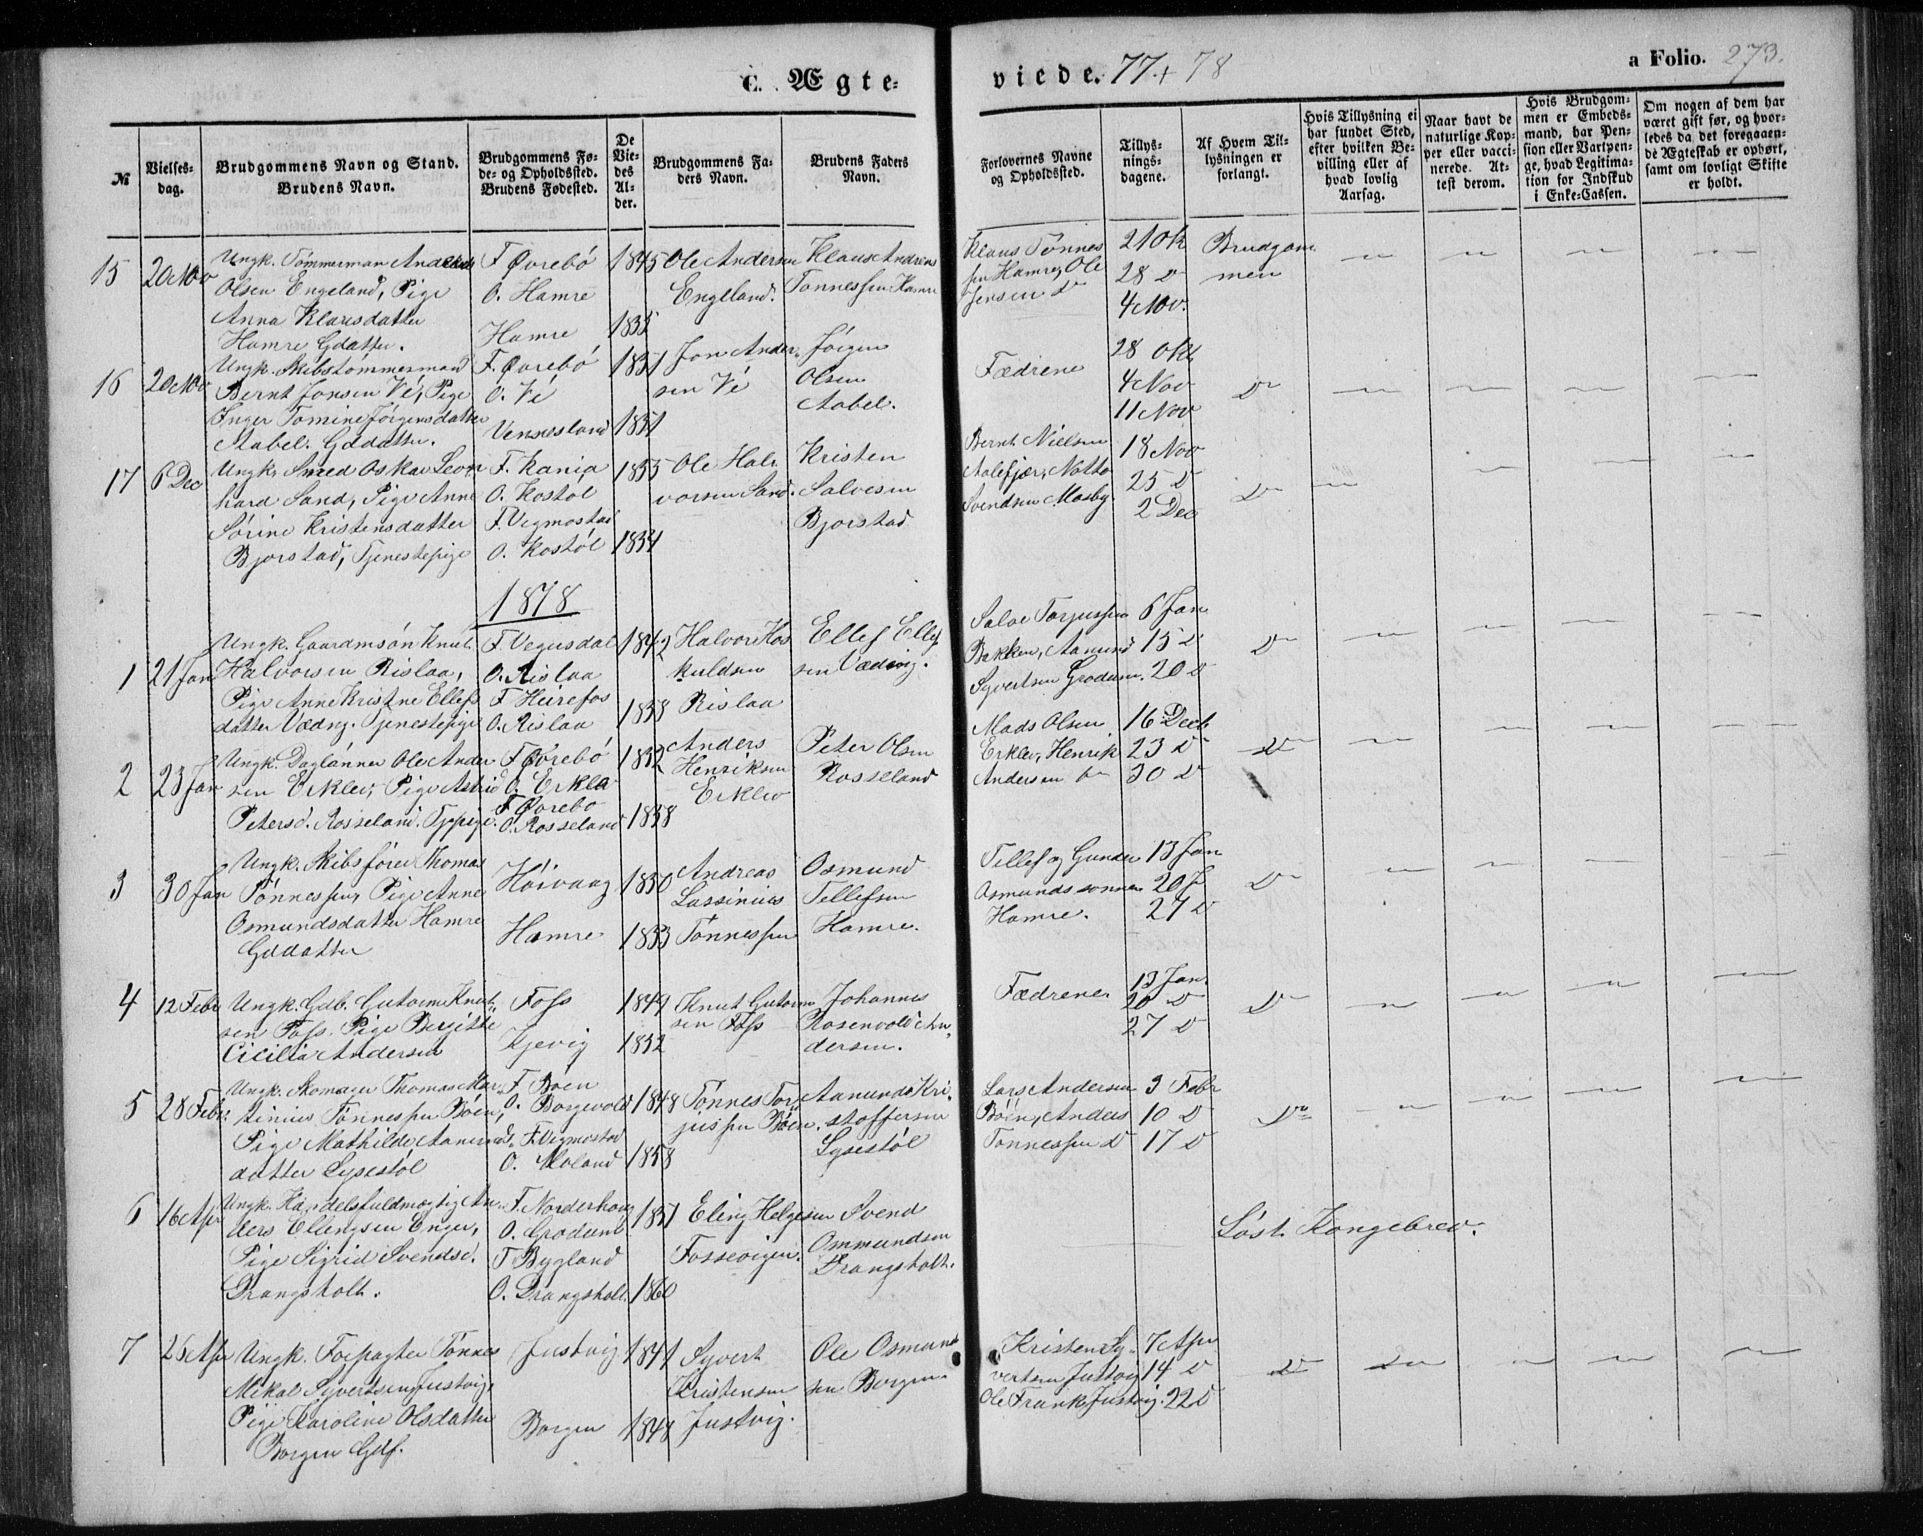 C. Ægte-
viede. 77 + 78
a Folio. 273.
№
Vielses-
dag.
Brudgommens Navn og Stand.
Brudens Navn.
Brudgommens Fø-
de- og Opholdssted.
Brudens Fødested.
De
Vie-
des
Al-
der.
Brudgommens Fa-
ders Navn.
Brudens Faders
Navn.
Forlovernes Navne
og Opholdssted.
Tillys-
nings-
dagene.
Af Hvem Til-
lysningen er
forlangt.
Hvis Tillysning ei
har fundet Sted,
efter hvilken Be-
villing eller af
hvad lovlig
Aarsag.
Naar havt de
naturlige Kop-
per eller vacci-
nerede. At-
test derom.
Hvis Brudgom-
men er Embeds-
mand, har Pen-
sion eller Vartpen-
ge, hvad Legitima-
tion for Indskud
i Enke-Cassen.
Om nogen af dem har
været gift før, og hvor-
ledes da det foregaaen-
de Ægteskab er ophørt,
samt om lovligt Skifte
er holdt.
15 20 Nov
Ungk. Tømmermand
Olsen Engeland, Pige
Anna Klausdatter
Hamre Gdatter.
F. Øvrebö
O. Hamre
Hamre
1845
1835
Ole Andersen
Engeland.
Klaus Andreas
Tønnessen Hamre
Klaus Tønnes
sen Hamre, Ole
Jensen D
21 Okt
28 D
4 Nov.
Brudgom
men
16 20 Nov
Ungk. Skibstømmermand
Bernt Jonsen Vé, Pige
Inger Tomine Jörgensdatter
Aabel. Gddatter.
F. Øvrebö
O. Vé
Vennesland
1851
1851
Jon Ander
sen Vé
Jörgen
Olsen
Aabel.
Fædrene
28 Okt
4 Nov
11 Nov
D
17 6 Dec
Ungk. Smed Oskar Leon
hard Sand, Pige Anne
Sörine Kristensdatter
Bjorstad, Tjenestepige
F. Rania
O. Kostöl
F. Vegmostad
O. Kostöl
1855
1854
Ole Hal
vorsen Sand.
Kristen
Salvesen
Bjorstad
Bernt Nielsen
Aalefjær, Notto
Svendsen Mosby
18 Nov
25 D
2 Dec
D
1878
1 21 Jan
Ungk. Gaardmsön Knut
Halvorsen Rislaa,
Pige Anne Kristine Ellefs
datter Vædvig. Tjenestepige
F. Vegusdal
O. Rislaa
F. Heirefos
O. Rislaa
1842
1838
Halvor Hos
kuldsen
Rislaa
Ellef Ellef
sen Vædvig.
Salve Torjussen
Bakken, Aamund
Syvertsen Grodum.
6 Jan
13 D
20 D
D
2 23 Jan
Ungk. Daglönner Ole Ander
sen Erklev, Pige Astrid
Petersd. Rosseland. Tjpige.
F. Øvrebö
O. Erklev
F Øvrebö
O. Rosseland
1852
1858
Anders
Henriksen
Erklev
Peter Olsen
Rosseland
Mads Olsen
Erklev, Henrik
Andersen D
16 Decb
23 D
30 D
D
3 30 Jan
Ungk. Skibsförer Thomas
Tönnessen, Pige Anne
Osmundsdatter Hamre
Gddatter
Höivaag
Hamre
1850
1853
Andreas
Lassinius
Tönnessen
Osmund
Tellefsen
Hamre.
Tellef og Gunder
Osmundssönner
Hamre.
13 Jan
20 J
27 D
D
4 12 Febr
Ungk. Gdb. Gutorm Knut
sen Foss. Pige Bergitte
Cicilia Andersen
Foss
Kjevig
1849
1852
Knut Gutorm
sen Foss
Johannes
Rosenvold An
dersen.
Fædrene
13 Jan
20 D
27 D
D
5 28 Febr
Ungk. Skomager Thomas Mar
tinius Tönnessen Böen,
Pige Mathilde Aamund
datter Lysestöl
F. Boen
O. Borgevold
F. Vigmostad
O. Moland
1848
1858
Tönnes Tor
jussen Böen.
Aamund Kri
stoffersen
Lysestöl
Lars Andersen
Böen, Anders
Tönnessen D
3 Febr
10 D
17 D
Do
6 16 Apr
Ungk. Handelsfuldmægtig An
ders Ellingsen Enger,
Pige Sigrid Svendsd.
Drangsholt.
F. Norderhoug
O. Grodum
F Bygland
O. Drangsholt
1851
1860
Eling Helgesen
Fossevigen.
Svend
Ommundsen
Drangsholt.
Löst Kongebrev.
7 25 Apr
Ungk. Forpagter Tönnes
Mikal Syvertsen Justvig,
Pige Karoline Olsdatter
Borgen Gdf.
Justvig
Borgen
1841
1848
Syvert
Kristensen
Justvig.
Ole Osmund
sen Borgen
Kristen Sy
vertsen Justvig
Ole Frank Justvig.
7 Apr
14 D
22 D
D